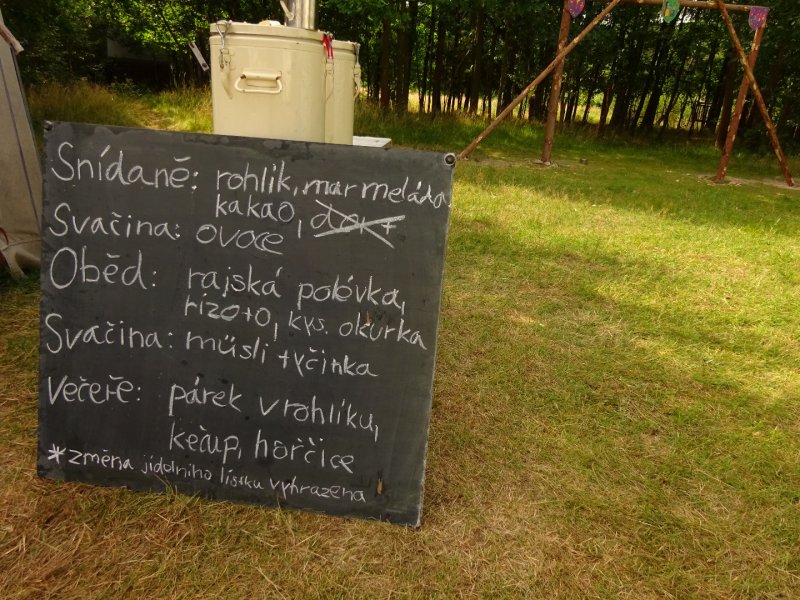 Snídaně: rohlik, marmeláda,
kakao,
Svačina: ovoce
Oběd: rajská polóvka,
rizoto, kys. okurka
Svačina: müsli tyčinka
Večeře: párek v rohlíku,
kečup, hořčice
*změna jídolního lístku vyhrazena